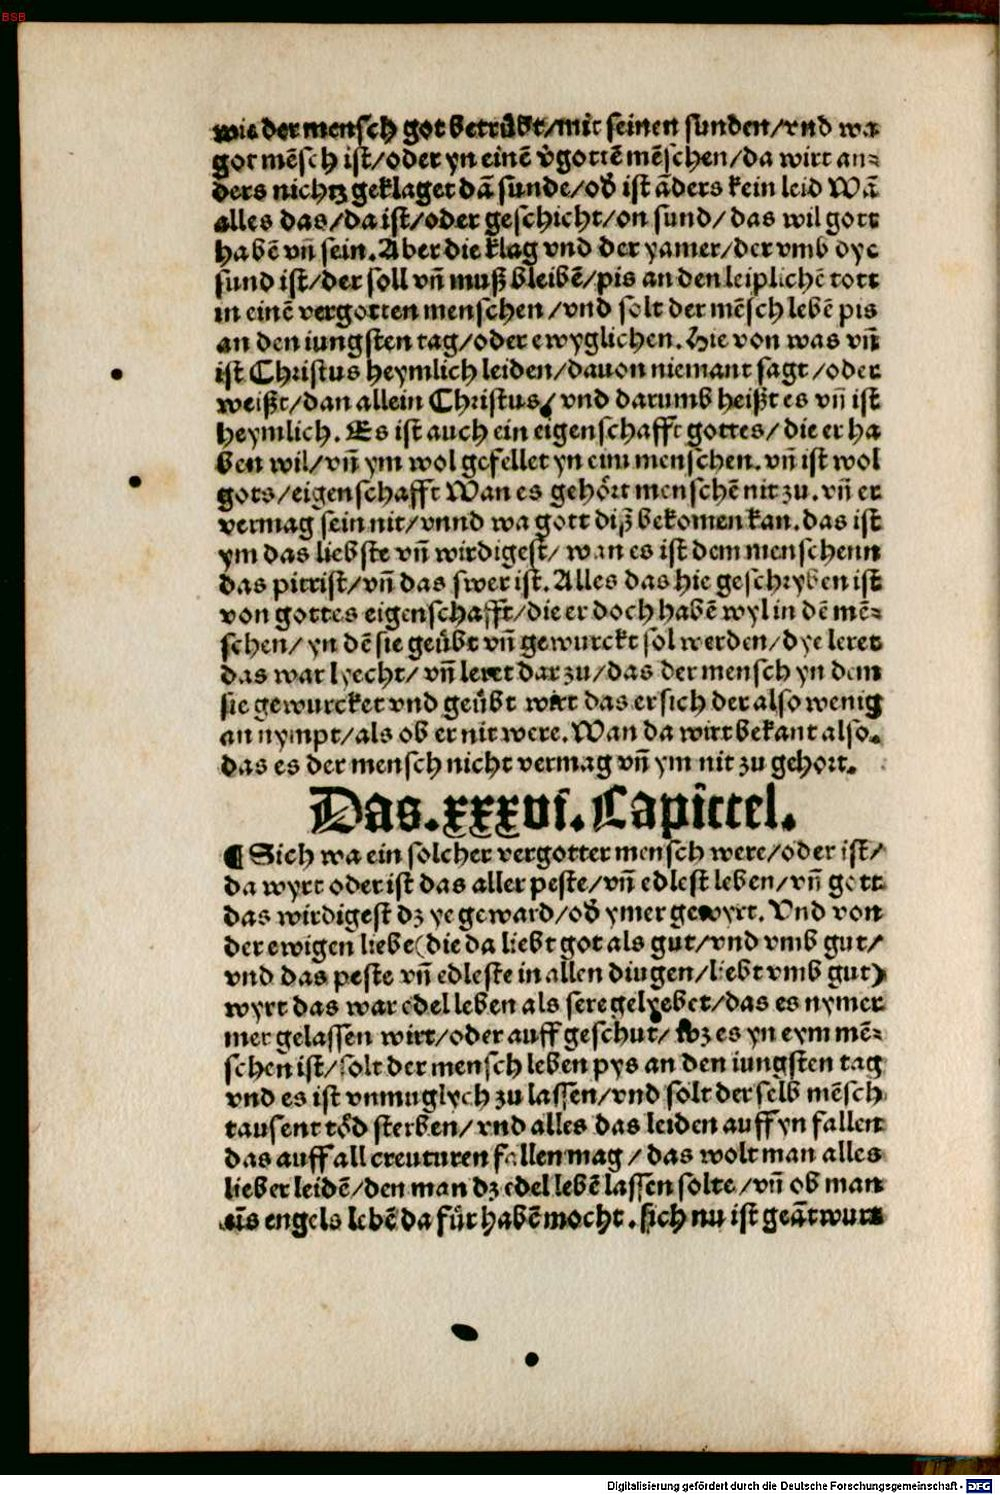 BSB
wie der mensch got betrůbt/mit seinen sunden/vnd wa
got mēsch ist/oder yn einē v̓gottē mēschen/da wirt an⸗
ders nichtz geklaget dā sunde/od̓ ist āders kein leid Wā
alles das/da ist/oder geschicht/on sund/das wil gott
habē vn̄ sein. Aber die klag vnd der yamer/der vmb dye
sund ist/der soll vn̄ muß bleibē/pis an den leiplichē tott
in einē vergotten menschen/vnd solt der mēsch lebē pis
an den iungsten tag/oder ewyglichen. Hie von was vn̄
ist Christus heymlich leiden/dauon niemant sagt/oder
weißt/dan allein Christus/ vnd darumb heißt es vn̄ ist
heymlich. Es ist auch ein eigenschafft gottes/die er ha
ben wil/vn̄ ym wol gefellet yn eim menschen. vn̄ ist wol
gots/eigenschafft Wan es gehört menschē nit zu. vn̄ er
vermag sein nit/vnnd wa gott diß bekomen kan. das ist
ym das liebste vn̄ wirdigest/ wan es ist dem menschenn
das pittrist/vn̄ das swer ist. Alles das hie geschryben ist
von gottes eigenschafft/die er doch habē wyl in dē mē⸗
schen/ yn dē sie geůbt vn̄ gewurckt sol werden/dye leret
das war lyecht/ vn̄ leret dar zu/das der mensch yn dem
sie gewurcket vnd geůbt wirt das er sich der also wenig
an nympt/als ob er nit were. Wan da wirt bekant also.
das es der mensch nicht vermag vn̄ ym nit zu gehort.
Das. xxxvi. Capittel.
¶ Sich wa ein solcher vergotter mensch were/oder ist/
da wyrt oder ist das aller peste/vn̄ edlest leben/vn̄ gott
das wirdigest dz ye geward/od̓ ymer gewyrt. Vnd von
der ewigen liebe (die da liebt got als gut/vnd vmb gut/
vnd das peste vn̄ edleste in allen dingen/liebt vmb gut)
wyrt das war edel leben als sere gelyebet/das es nymer
mer gelassen wirt/oder auff geschut/ wz es yn eym mē⸗
schen ist/solt der mensch leben pys an den iungsten tag
vnd es ist vnmuglych zu lassen/vnd solt der selb mēsch
tausent tŏd sterben/vnd alles das leiden auff yn fallen
das auff all creuturen fallen mag/ das wolt man alles
lieber leidē/den man dz edel lebē lassen solte/vn̄ ob man
eīs engels lebē da für habē mocht. sich nu ist geātwurt
Digitalisierung gefördert durch die Deutsche Forschungsgemeinschaft - DFG